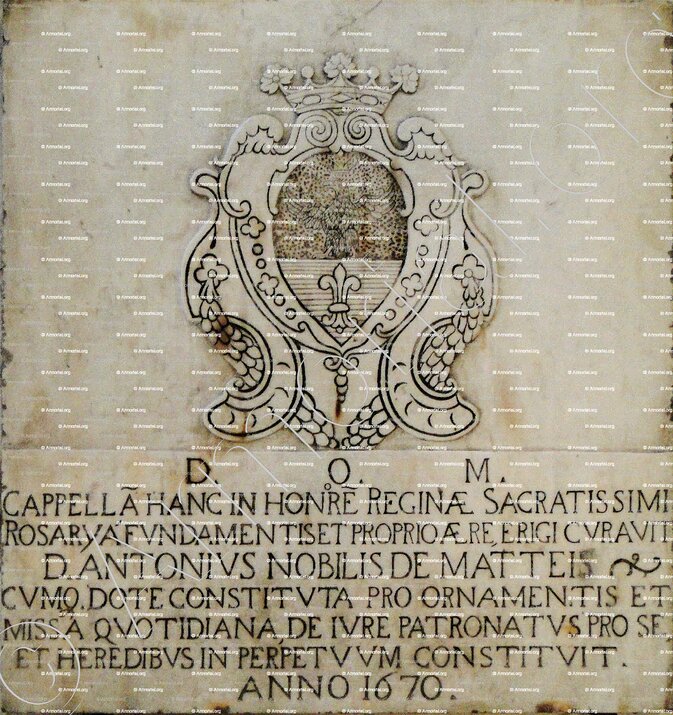 D O M
CAPPELLĀ HANC IN HON:RE REGINÆ SACRATISSIMI
ROSARY A FVNDAMENTIS ET PROPRIO ÆRE ERIGI CVRAVIT
D. ANTONIVS NOBILIS DE MATTEIS
CVMQ DOTE CONSTITVTA PRO ORNAMENTIS ET
MISSA QVOTIDIANA DE IVRE PATRONATVS PRO SE
ET HEREDIBVS IN PERPETVVM CONSTITVIT.
ANNO 1670.
© Armorial.org